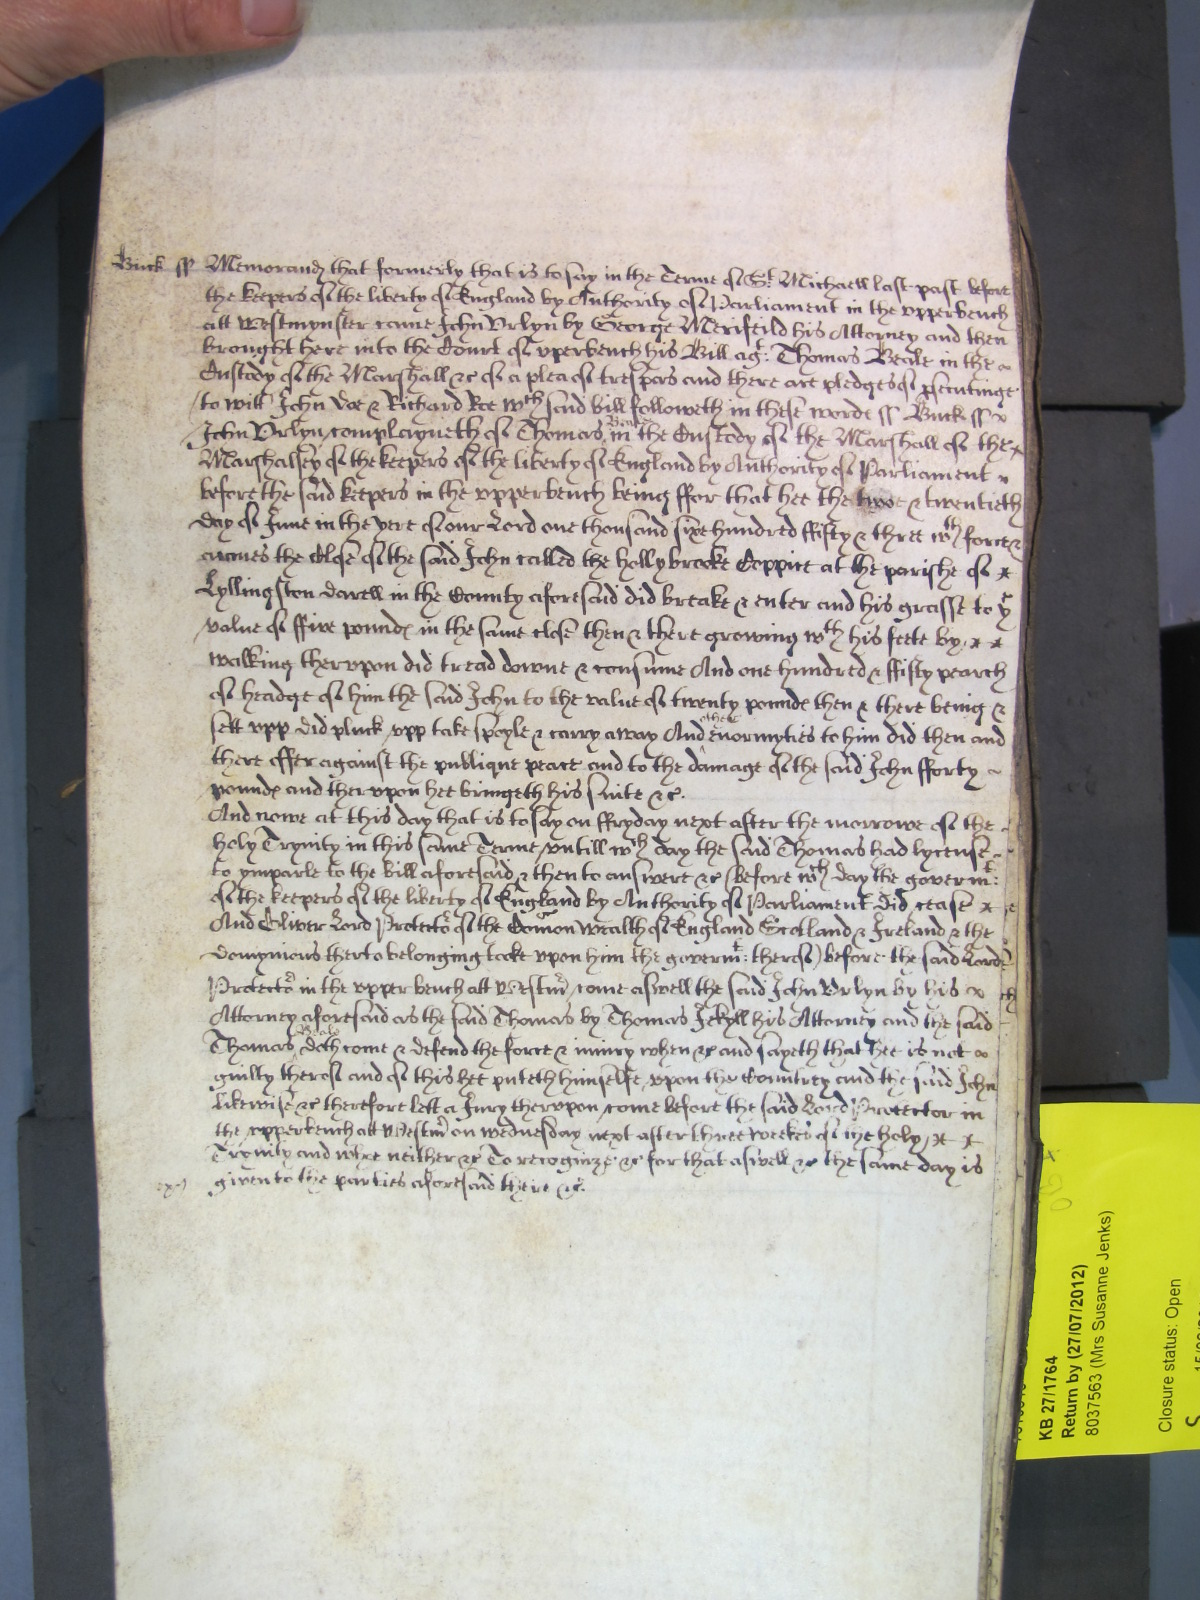 Buck ss Memorand that formerly that is to say in the Terme of St Michaell last past before
the keepers of the liberty of England by Authority of Parliament in the vpperbench
att Westmynster came John Vrlyn by George Merifeild his Attorney and then
brought here into the Court of vperbench his Bill agt: Thomas Beale in the
Custody of the Marshall &c of a plea of trespas and there are pledges of psecutinge
to witt John Doe & Richard Roe wth said bill followeth in these words ss Buck ss
John Vrlyn complayneth of Thomas Beale in the Custody of the Marshall of the
Marshalsey of the keepers of the liberty of England by Authority of Parliament
before the said keepers in the vpperbench being ffor that hee the twoe & twentieth
day of June in the yere of our Lord one thousand sixe hundred ffifty & three wth force &
armes the close of the said John called the hollybrooke Coppice at the parishe of
Lyllingston Darell in the County aforesaid did breake & enter and his grasse to ye
value of ffive pounds in the same close then & there growing wth his feete by
walking thervpon did tread downe & consume And one hundred & ffifty pearch
of headge of him the said John to the value of twenty pounds then & there being &
sett vpp did pluck vpp take spoyle & carry away And other enormyties to him did then and
there offer against the publique peace and to the damage of the said John fforty
pounds and thervpon hee bringeth his suite &c.
And nowe at this day that is to say on ffryday next after the morrowe of the
holy Trynity in this same Terme vntill wch day the said Thomas had lycense
to ymparle to the bill aforesaid & then to answere &c (before wch day the governmt:
of the keepers of the liberty of England by Authority of Parliament did cease
And Oliver Lord Protector of the Comon wealth of England Scotland & Ireland & the
Domynions therto belonging tooke vpon him the governmt: therof) before the said Lord
Protector in the vpper bench att Westmr come aswell the said John Vrlyn by his
Attorney aforesaid as the said Thomas by Thomas Jekyll his Attorney and the said
Thomas Beale doth come & defend the force & iniury when &c and sayeth that hee is not
guilty therof and of this hee putteth himselfe vpon the Countrey and the said John
likewise &c therefore lett a Jury thervpon come before the said Lord Protector in
the vpperbench att Westmr on wednesday next after three weekes of the holy
Trynity and whoe neither &c To recognize &c for that aswell &c the same day is
given to the parties aforesaid there &c.
KB 27/1764
Return by (27/07/2012)
8037563 (Mrs Susanne Jenks)
Closure status: Open